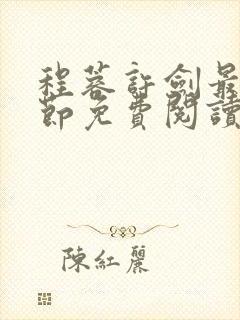 程蓉許劍最
節免費閱讀
陳紅麗